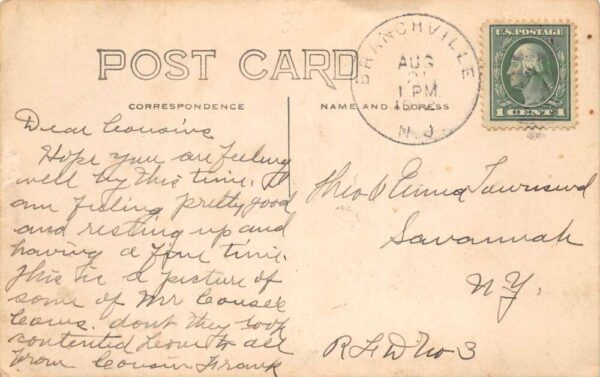 POST CARD
CORRESPONDENCE
NAME AND ADDRESS
BRANCHVILLE
AUG
1 PM
N.J.
U.S. POSTAGE
1 CENT 1
Dear Cousins
Hope you are feeling
well by this time. I
am feeling pretty good
and resting up and
having a fine time.
This is a picture of
some of Mr
Cows. dont they look
contented Love to all
From Cousin Frank
Townsend
Savannah
N.Y.
R F D No 3